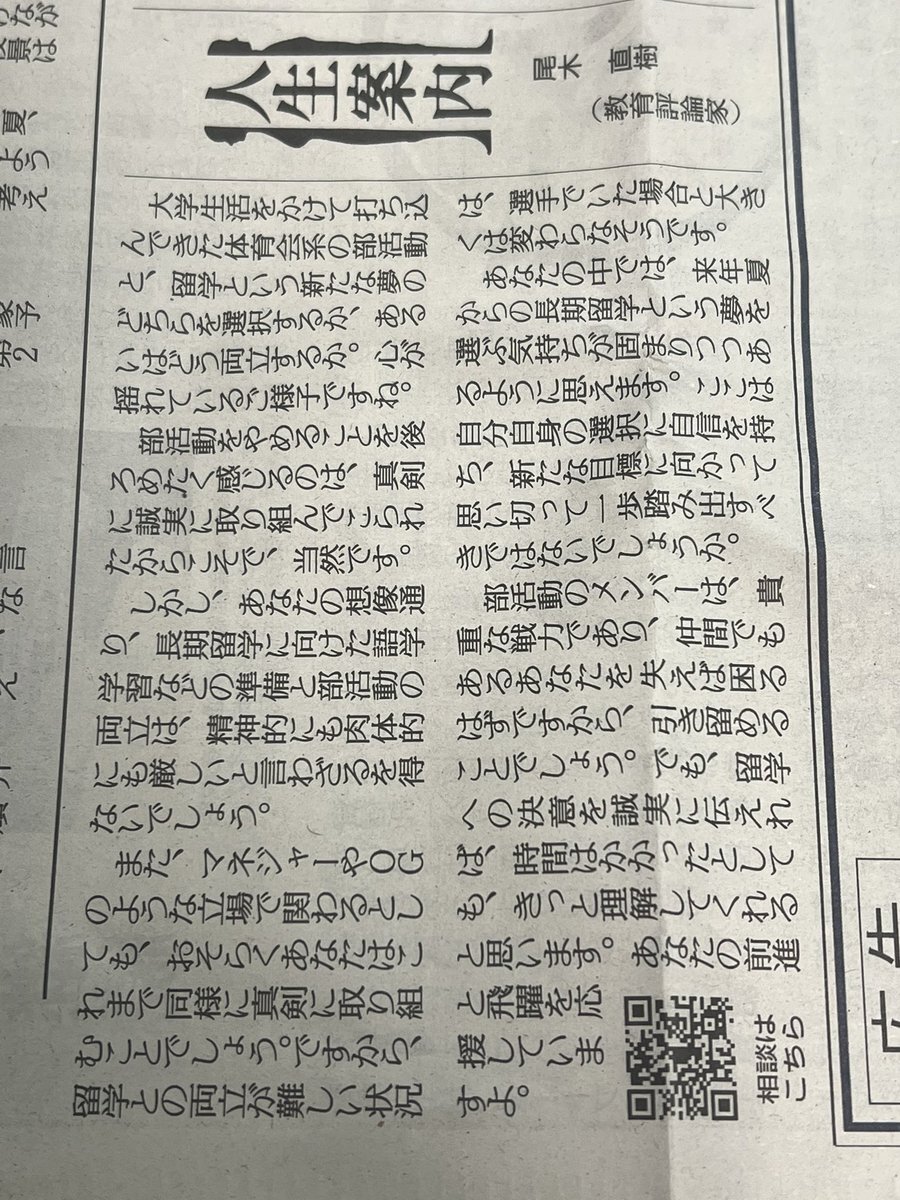 人生案内
尾木 直樹
(教育評論家)
大学生活をかけて打ち込
んできた体育会系の部活動
と、留学という新たな夢の
どちらを選択するか、ある
いはどう両立するか。心が
揺れているご様子ですね。
部活動をやめることを後
ろめたく感じるのは、真剣
に誠実に取り組んでこられ
たからこそで、当然です。
しかし、あなたの想像通
り、長期留学に向けた語学
学習などの準備と部活動の
両立は、精神的にも肉体的
にも厳しいと言わざるを得
ないでしょう。
また、マネジャーやOG
のような立場で関わるとし
ても、おそらくあなたはこ
れまで同様に真剣に取り組
むことでしょう。ですから、
留学との両立が難しい状況
は、選手でいた場合と大き
くは変わらなそうです。
あなたの中では、来年夏
からの長期留学という夢を
選ぶ気持ちが固まりつつあ
るように思えます。ここは
自分自身の選択に自信を持
ち、新たな目標に向かって
思い切って一歩踏み出すべ
きではないでしょうか。
部活動のメンバーは、貴
重な戦力であり、仲間でも
あるあなたを失えば困る
はずですから、引き留める
ことでしょう。でも、留学
への決意を誠実に伝えれ
ば、時間はかかったとして
も、きっと理解してくれる
と思います。あなたの前進
と飛躍を応
援していま
すよ。
相談は
こちら
夏、
よう
考え